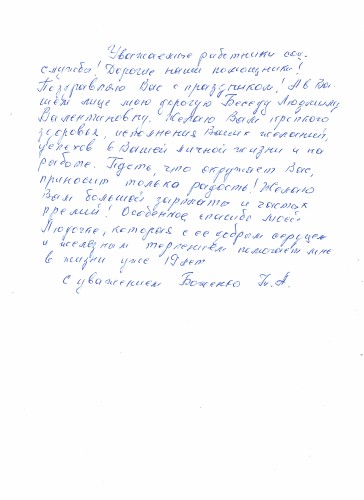 Уважаемые работники соц.
службы! Дорогие наши помощники!
Поздравляю Вас с праздником! А в Ва
шем лице мою дорогую Беседу Людмилу
Валентиновну. Желаю Вам крепкого
здоровья, исполнения Ваших желаний,
успехов в Вашей личной жизни и на
работе. Пусть, что окружает Вас,
приносит только радость! Желаю
Вам большой зарплаты и частых
премий! Особенное спасибо моей
Людочке, которая с её добрым сердцем
и железным терпением помогает мне
в жизни уже 19 лет
С уважением Боженко П. А.